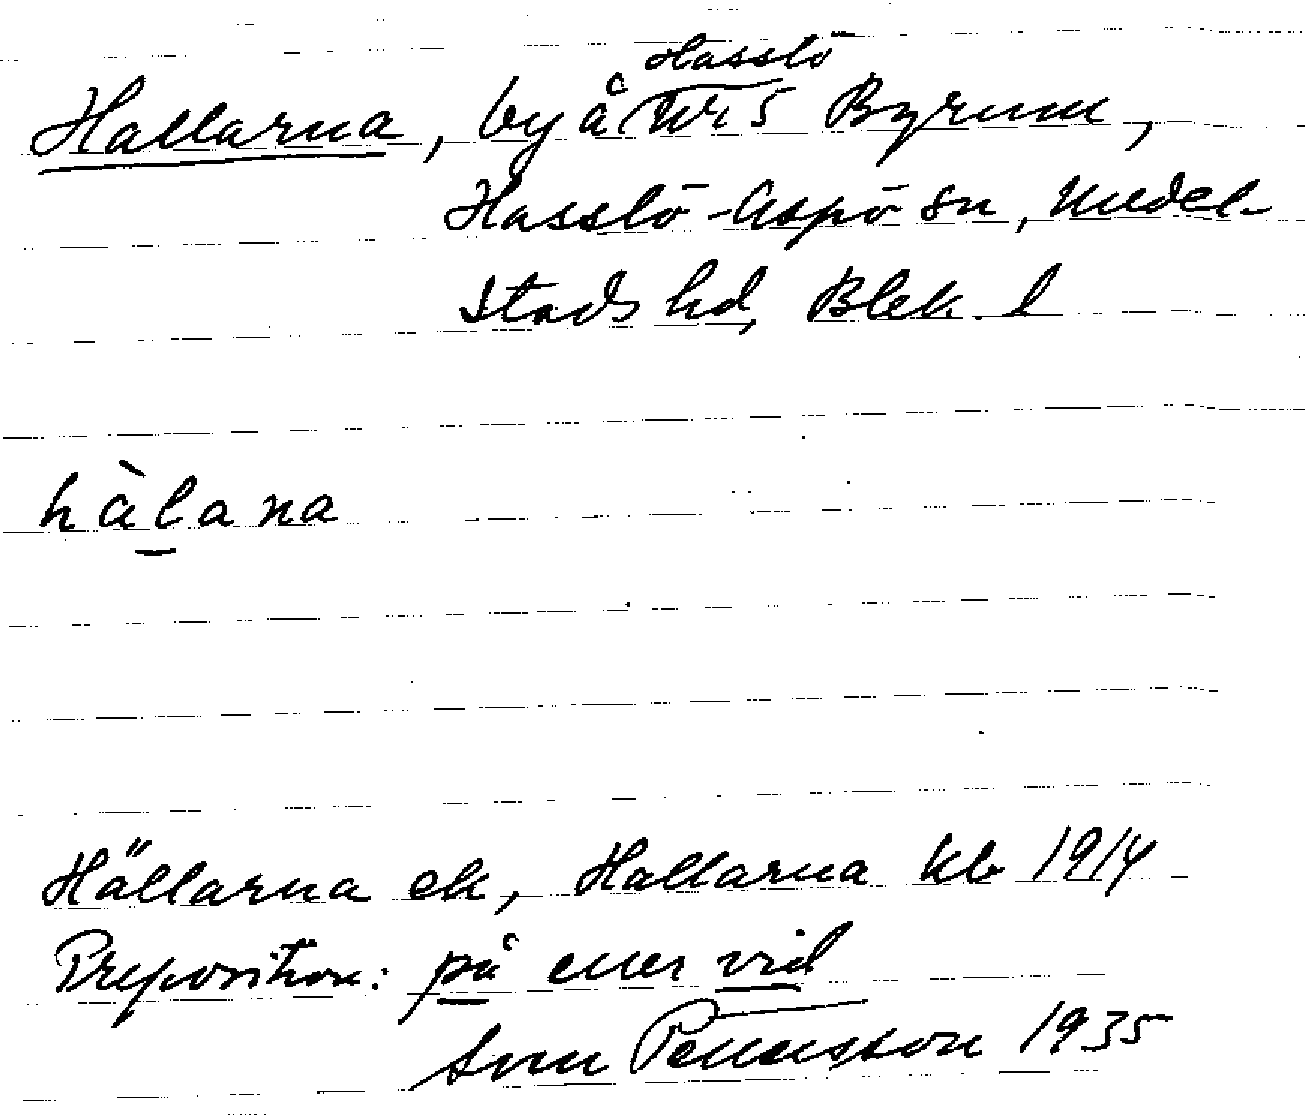 Hallarna, by å Hasslö nr 5 Byrum,
Hasslö-Aspö sn, Medel-
stads hd, Blek. l
hàlana
Hällarna ek, Hallarna kb 1914
Preposition: på eller vid
1935